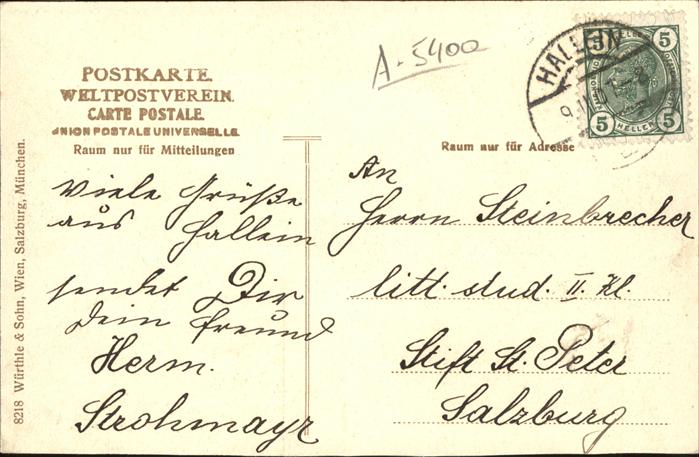 A. 5400
POSTKARTE.
WELTPOSTVEREIN.
CARTE POSTALE.
UNION POSTALE UNIVERSELLE.
Raum nur für Mitteilungen
Viele Grüße
aus Hallein
sendet Dir
Dein Freund
Herm.
Strohmayr
8218 Würthle & Sohn, Wien, Salzburg, München.
HALLEIN
5 HELLER 5
5 HELLER 5
Raum nur für Adresse
An
Herrn Steinbrecher
litt. stud. II. Kl.
Stift St. Peter
Salzburg